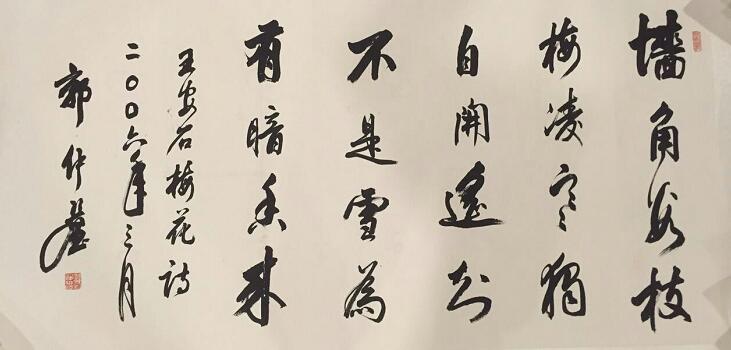 墻角数枝
梅凌寒獨
自開遙知
不是雪為
有暗香來
王安石梅花诗
二〇〇六年三月
郭仲